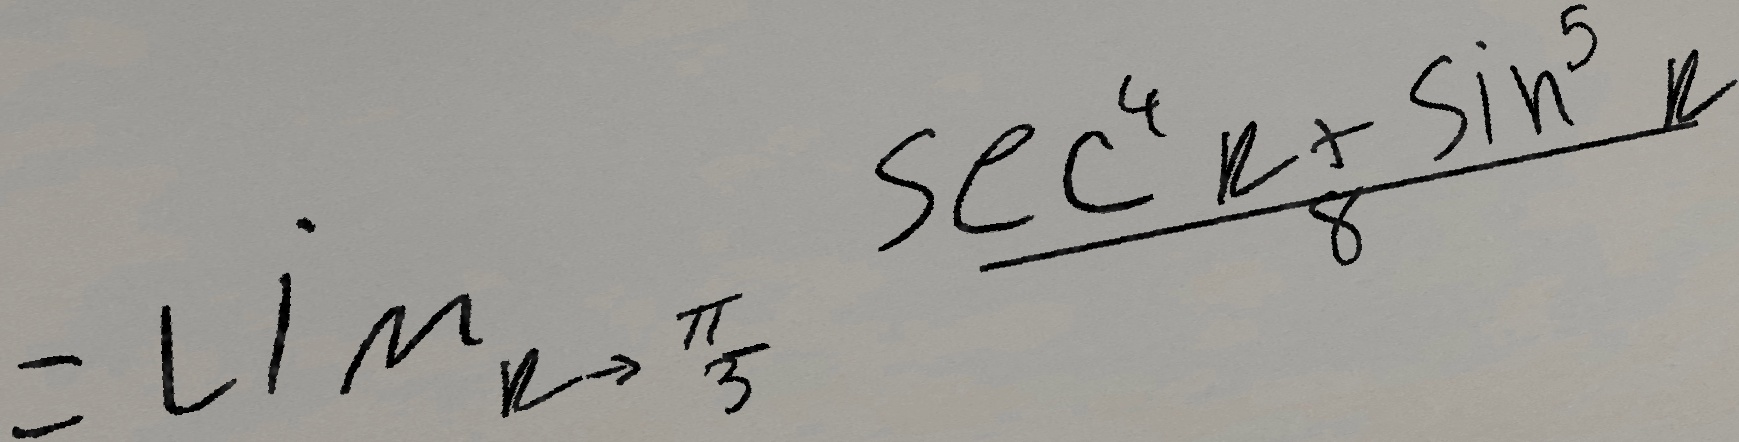 = lim_{k→π/3} \frac{sec^4 k + sin^5 k}{8}